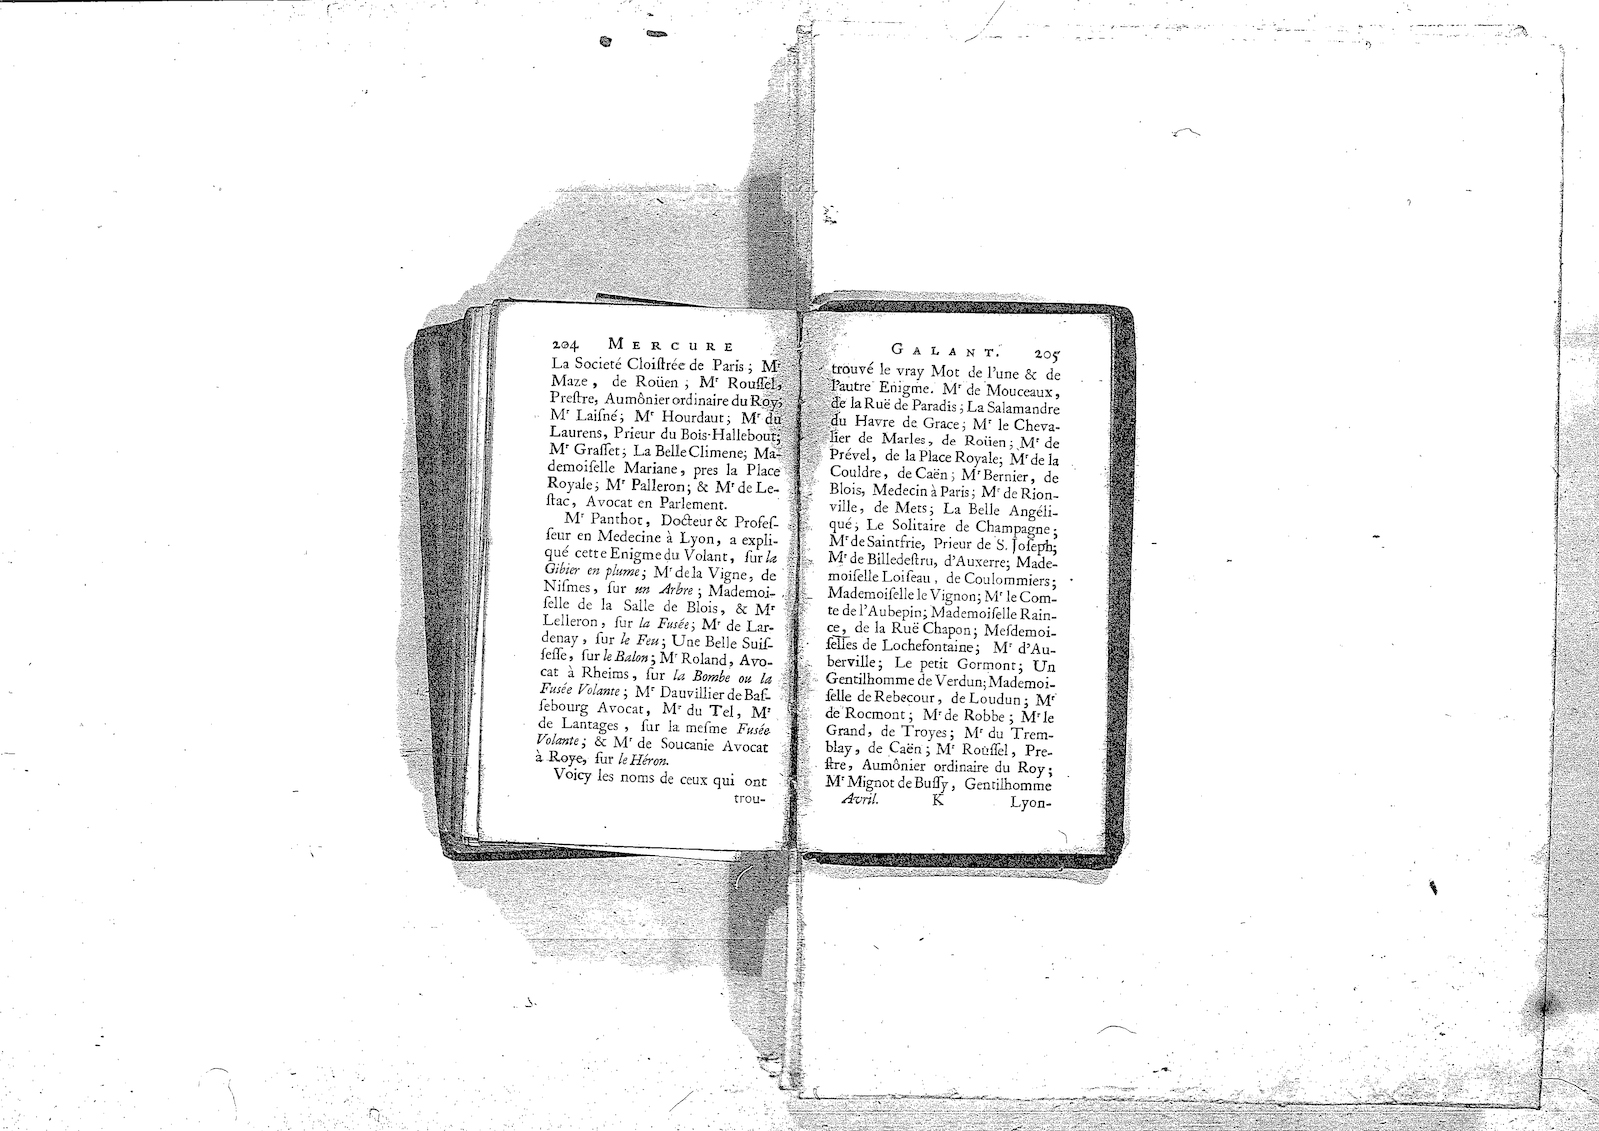 204 MERCURE
La Societé Cloiſtrée de Paris ; Mʳ
Maze, de Roüen ; Mʳ Rouſſel,
Preſtre, Aumônier ordinaire du Roy;
Mʳ Laiſné; Mʳ Hourdaut; Mʳ du
Laurens, Prieur du Bois-Hallebout;
Mʳ Graſſet; La Belle Climene; Ma-
demoiſelle Mariane, pres la Place
Royale; Mʳ Palleron; & Mʳ de Le-
ſtac, Avocat en Parlement.
Mʳ Panthot, Docteur & Profeſ-
ſeur en Medecine à Lyon, a expli-
qué cette Enigme du Volant, ſur la
Gibier en plume; Mʳ de la Vigne, de
Niſmes, ſur un Arbre; Mademoi-
ſelle de la Salle de Blois, & Mʳ
Lelleron, ſur la Fuſée; Mʳ de Lar-
denay, ſur le Feu; Une Belle Suiſ-
ſeſſe, ſur le Balon; Mʳ Roland, Avo-
cat à Rheims, ſur la Bombe ou la
Fusée Volante; Mʳ Dauvillier de Baſ-
ſebourg Avocat, Mʳ du Tel, Mʳ
de Lantages, ſur la meſme Fusée
Volante; & Mʳ de Soucanie Avocat
à Roye, ſur le Héron.
Voicy les noms de ceux qui ont
trou-
GALANT. 205
trouvé le vray Mot de l'une & de
l'autre Enigme. Mʳ de Mouceaux,
de la Ruë de Paradis; La Salamandre
du Havre de Grace; Mʳ le Cheva-
lier de Marles, de Roüen; Mʳ de
Prével, de la Place Royale; Mʳ de la
Couldre, de Caën; Mʳ Bernier, de
Blois, Medecin à Paris; Mʳ de Rion-
ville, de Mets; La Belle Angéli-
qué; Le Solitaire de Champagne;
Mʳ de Saintfrie, Prieur de S. Joſeph;
Mʳ de Billedeſtru, d'Auxerre; Made-
moiſelle Loiſeau, de Coulommiers;
Mademoiſelle le Vignon; Mʳ le Com-
te de l'Aubepin; Mademoiſelle Rain-
ce, de la Ruë Chapon; Meſdemoi-
ſelles de Lochefontaine; Mʳ d'Au-
berville; Le petit Gormont; Un
Gentilhomme de Verdun; Mademoi-
ſelle de Rebecour, de Loudun; Mʳ
de Rocmont; Mʳ de Robbe; Mʳ le
Grand, de Troyes; Mʳ du Trem-
blay, de Caën; Mʳ Rouſſel, Pre-
ſtre, Aumônier ordinaire du Roy;
Mʳ Mignot de Buſſy, Gentilhomme
Avril. K Lyon-